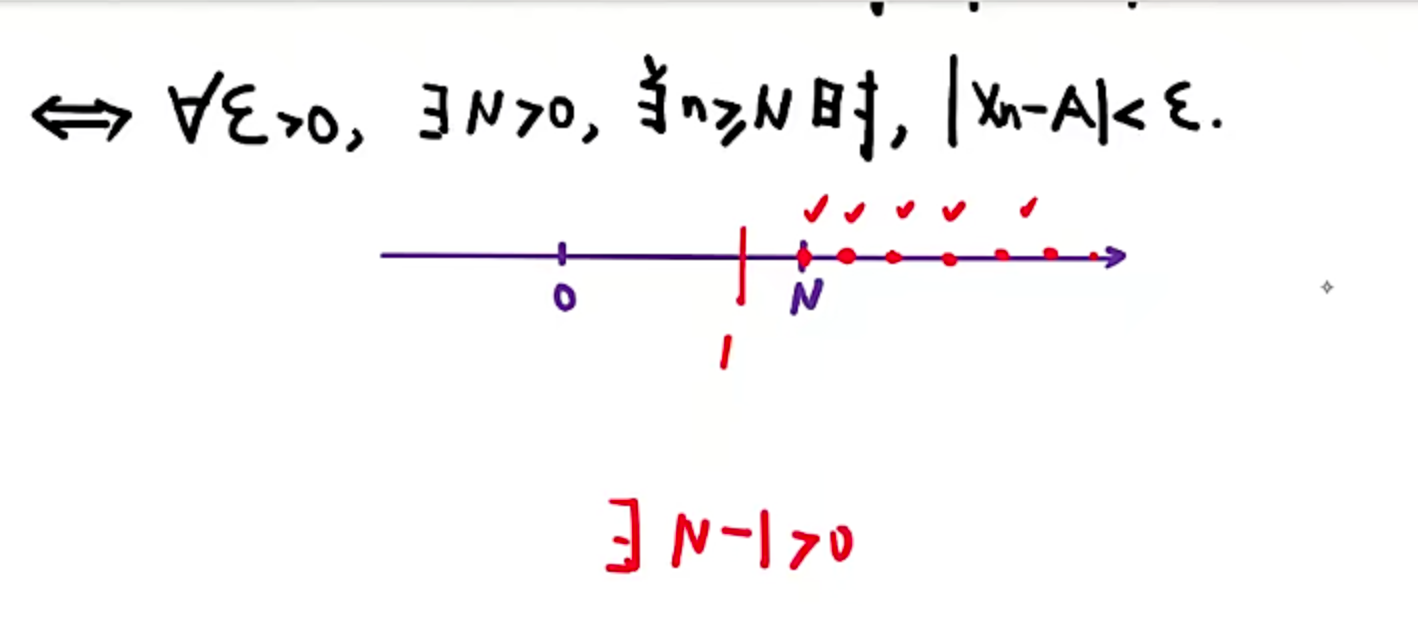 ⟺ ∀ε>0, ∃N>0, 当n≥N时, |Xn-A|<ε.
0 N
1
∃ N-1>0